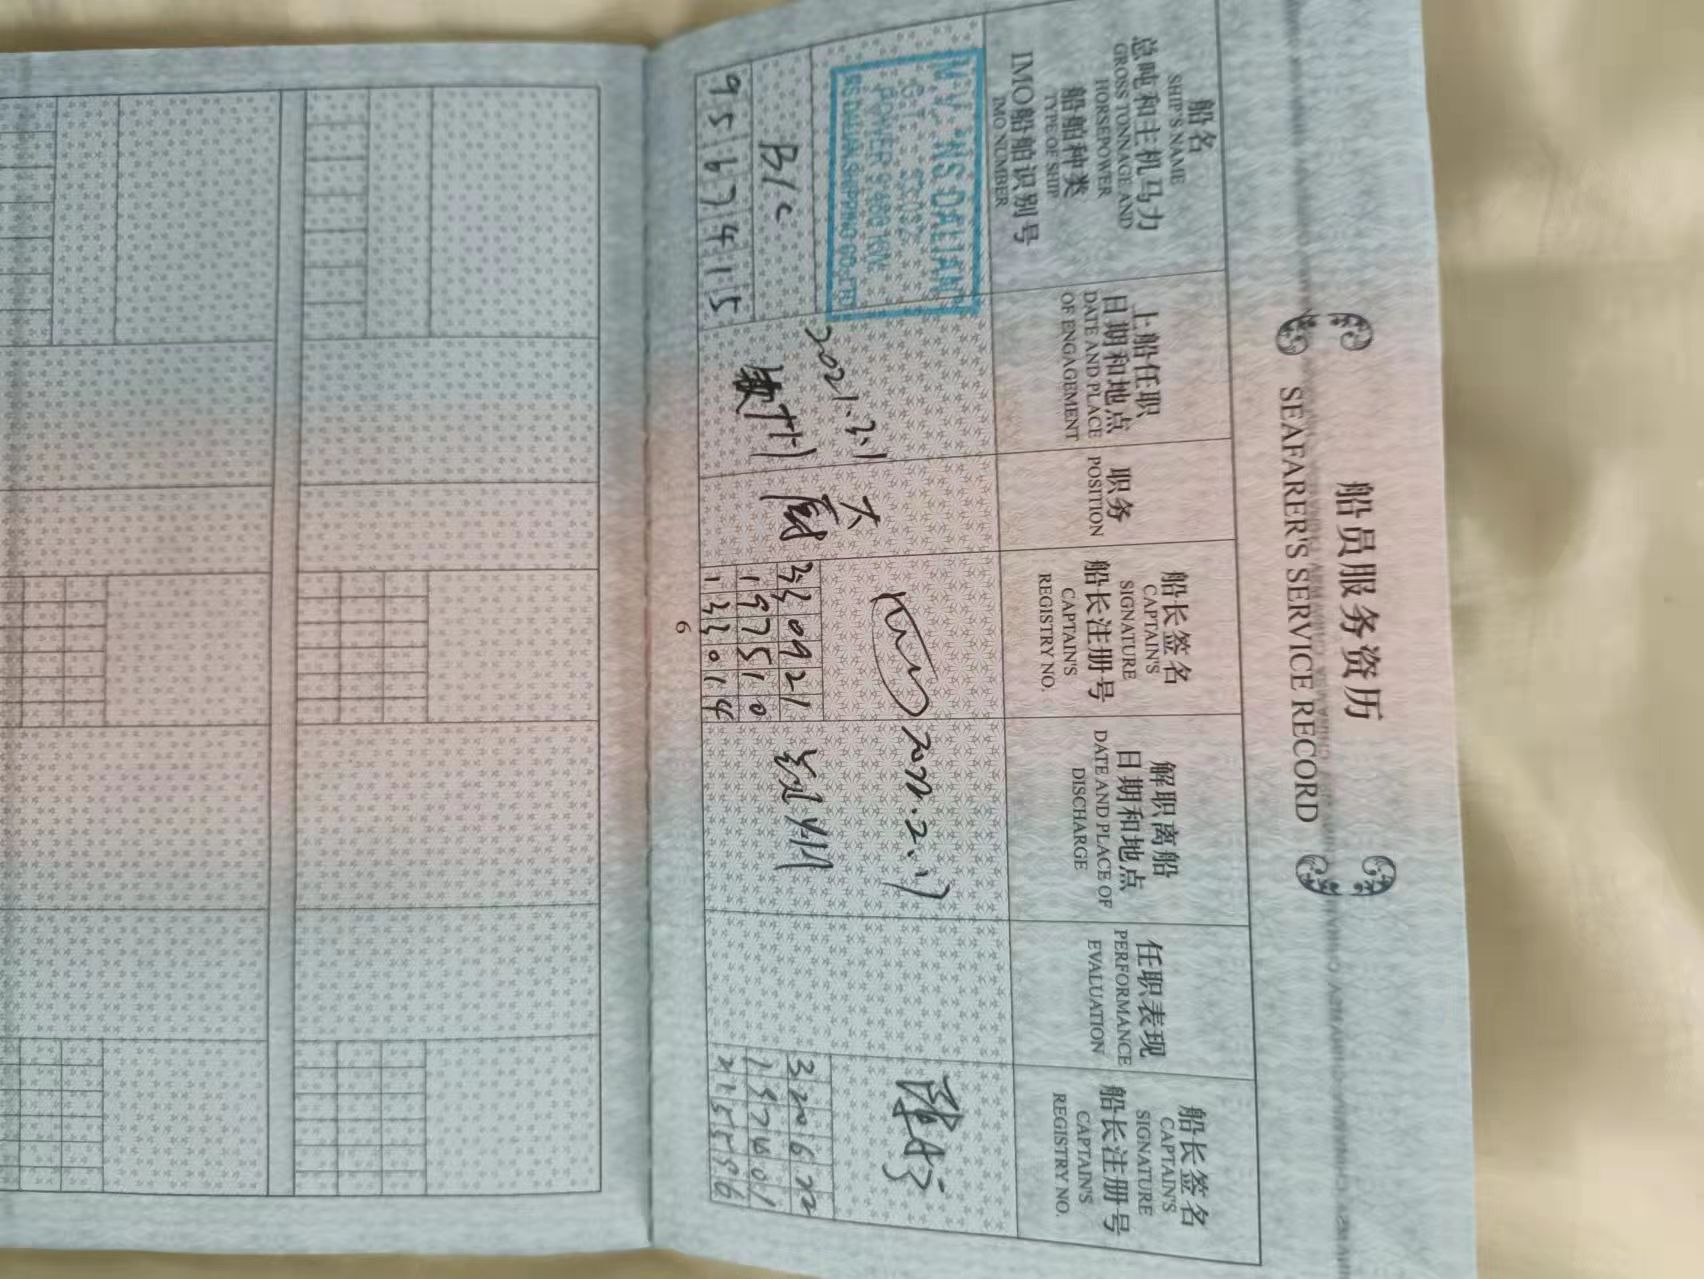 船员服务资历
SEAFARER'S SERVICE RECORD
船名
SHIP'S NAME
总吨和主机马力
GROSS TONNAGE AND
HORSEPOWER
船舶种类
TYPE OF SHIP
IMO船舶识别号
IMO NUMBER
上船任职
日期和地点
DATE AND PLACE
OF ENGAGEMENT
职务
POSITION
船长签名
CAPTAIN'S
SIGNATURE
船长注册号
CAPTAIN'S
REGISTRY NO.
解职离船
日期和地点
DATE AND PLACE OF
DISCHARGE
任职表现
PERFORMANCE
EVALUATION
船长签名
CAPTAIN'S
SIGNATURE
船长注册号
CAPTAIN'S
REGISTRY NO.
M.V. "NS DALIAN"
POWER 9480 KW
B/C
9567415
2021.3.1
大
厨
330921
197510
133014
2022.2.17
6